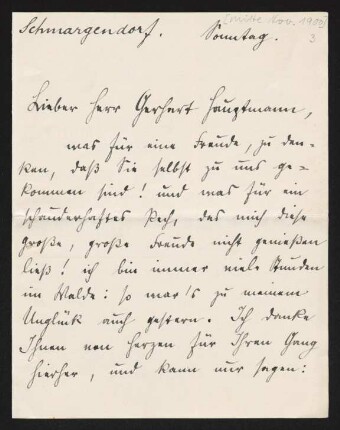 [Mitte Nov. 1900]
Schmargendorf. Sonntag.
3
Lieber Herr Gerhart Hauptmann,
was für eine Freude, zu den-
ken, daß Sie selbst zu uns ge-
kommen sind! und was für ein
schauderhaftes Pech, das mich diese
große, große Freude nicht genießen
ließ! ich bin immer viele Stunden
im Walde: so war's zu meinem
Unglück auch gestern. Ich danke
Ihnen von Herzen für Ihren Gang
hierher, und kann nur sagen: